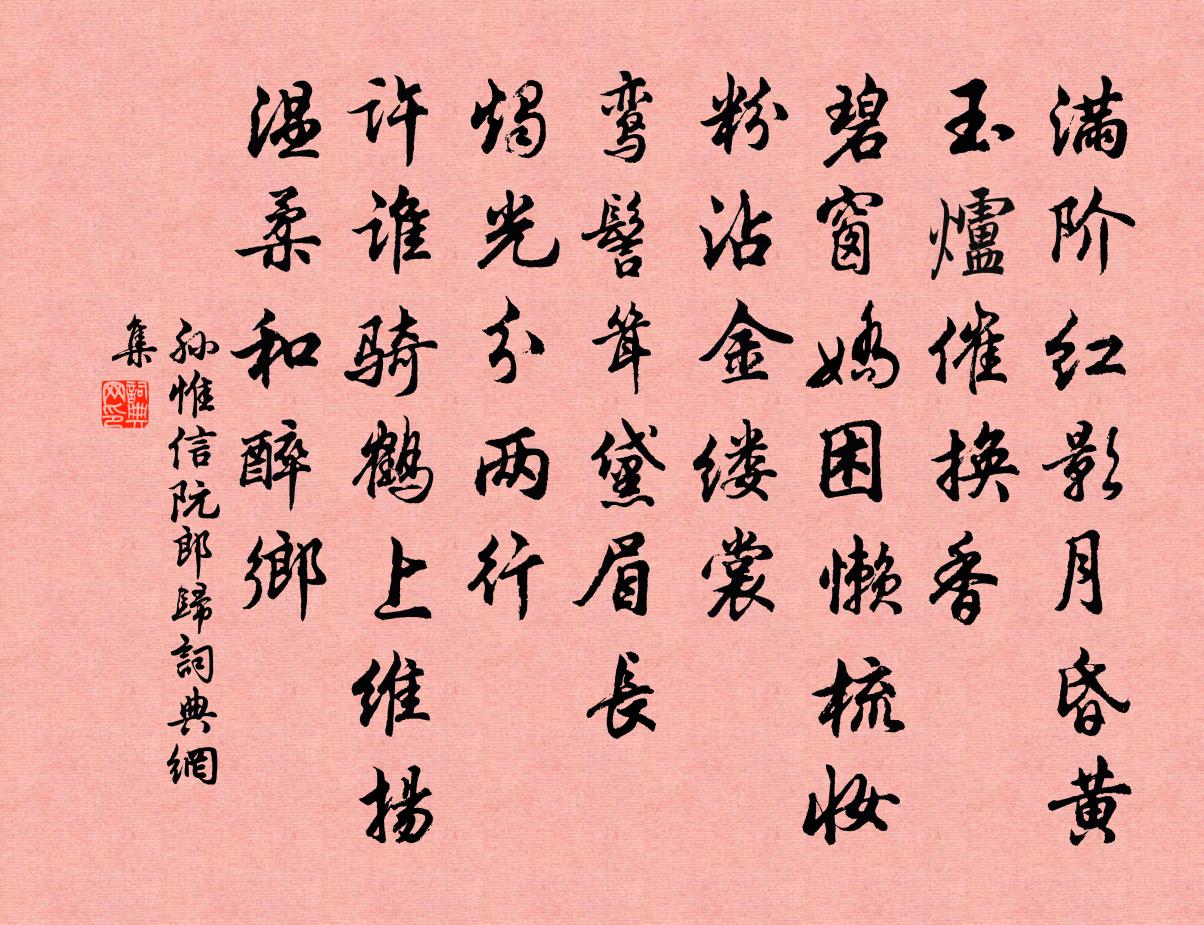 满阶红影月昏黄
玉爐催换香
碧窗娇困懒梳妆
粉沾金缕裳
鸾髻耸黛眉長
燭光分两行
许谁骑鹤上维扬
温柔和醉鄉
孙惟信阮郎歸詞典網
集
詞典网印